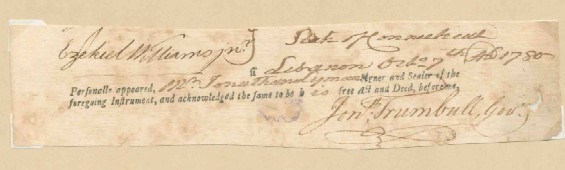 Ezekiel Williams jnr } State of Connecticut
ss Lebanon Octor 7th AD 1780
Personally appeared, Mr. Jonathan Lyman Signer and Sealer of the
foregoing Instrument, and acknowledged the same to be his free Act and Deed, before me,
Jonth Trumbull, Govr